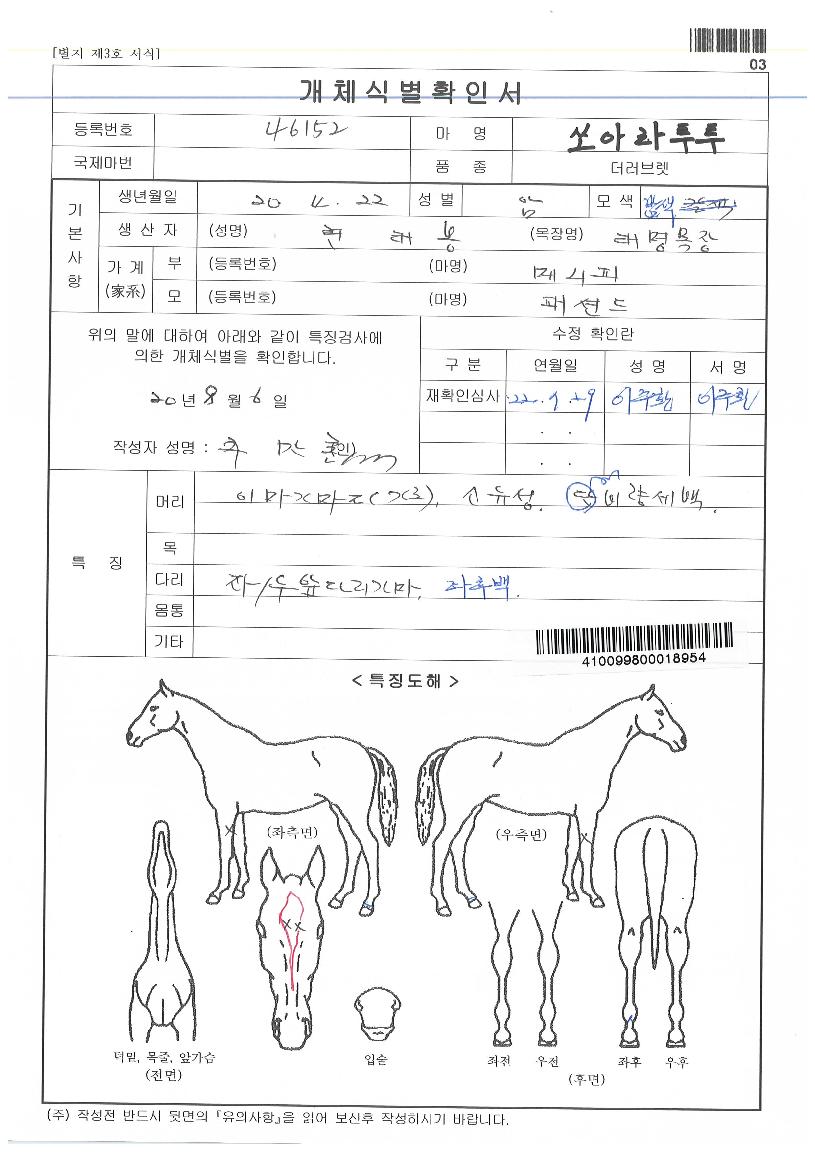 [별지 제3호 서식]
03
개체식별확인서
등록번호 46152 마 명 쏘아라투투
국제마번 품 종 더러브렛
기본사항
생년월일 20 4. 22 성 별 암 모 색
생 산 자 (성명) (목장명) 태명목장
가 계 (家系) 부 (등록번호) (마명) 메니피
모 (등록번호) (마명)
위의 말에 대하여 아래와 같이 특징검사에
의한 개체식별을 확인합니다.
20년 8월 6일
작성자 성명 : (인)
수정 확인란
구 분 연월일 성 명 서 명
재확인심사 22. . 29
. .
. .
특 징
머리 이마가마2(가로), 소유성. 비량세백.
목
다리 좌/우앞다리가마, 좌후백.
몸통
기타
410099800018954
< 특징도해 >
(좌측면) (우측면)
턱밑, 목줄, 앞가슴
(전면)
입술
좌전 우전 좌후 우후
(후면)
(주) 작성전 반드시 뒷면의 『유의사항』을 읽어 보신후 작성하시기 바랍니다.